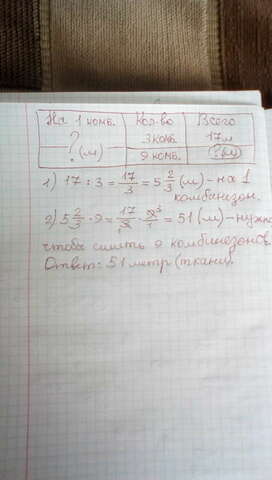 На 1 комб. Кол-во Всего
? (м) 3 комб. 17 м
9 комб. ? (м)
1) 17 : 3 = 17/3 = 5 2/3 (м) - на 1
комбинезон.
2) 5 2/3 · 9 = 17/3 · 9/1 = 51 (м) - нужно
чтобы сшить 9 комбинезонов.
Ответ: 51 метр (ткани).